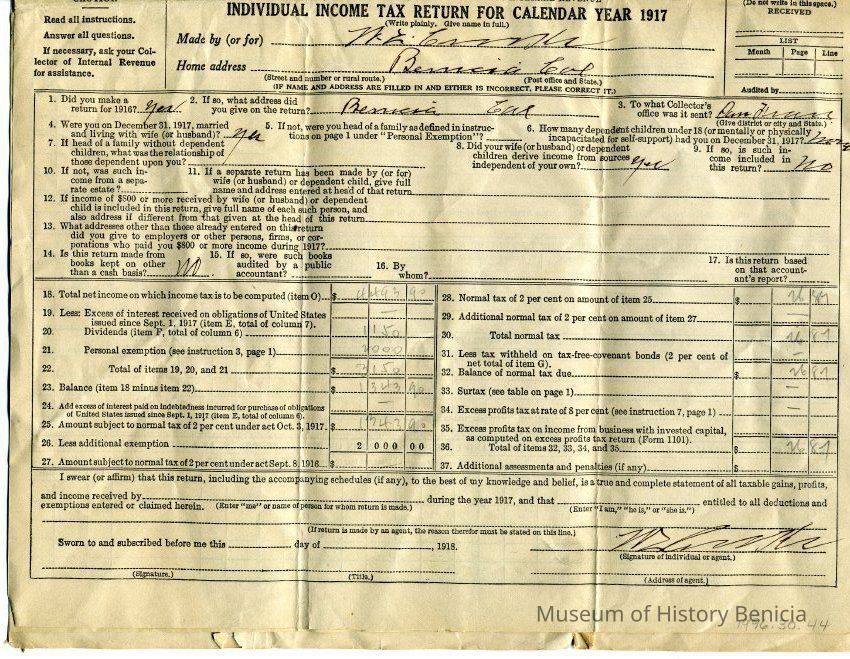 Read all instructions.
Answer all questions.
If necessary, ask your Collector of Internal Revenue for assistance.
INDIVIDUAL INCOME TAX RETURN FOR CALENDAR YEAR 1917
(Write plainly. Give name in full.)
Made by (or for)
Home address Benicia Cal
(Street and number or rural route.) (Post office and State.)
(IF NAME AND ADDRESS ARE FILLED IN AND EITHER IS INCORRECT, PLEASE CORRECT IT.)
(Do not write in this space.)
RECEIVED
LIST
Month Page Line
Audited by
1. Did you make a return for 1916? Yes
2. If so, what address did you give on the return? Benicia Cal
3. To what Collector's office was it sent? San Fran
(Give district or city and State.)
4. Were you on December 31, 1917, married and living with wife (or husband)? Yes
5. If not, were you head of a family as defined in instructions on page 1 under "Personal Exemption"?
6. How many dependent children under 18 (or mentally or physically incapacitated for self-support) had you on December 31, 1917?
7. If head of a family without dependent children, what was the relationship of those dependent upon you?
8. Did your wife (or husband) or dependent children derive income from sources independent of your own? Yes
9. If so, is such income included in this return? No
10. If not, was such income from a separate estate?
11. If a separate return has been made by (or for) wife (or husband) or dependent child, give full name and address entered at head of that return
12. If income of $800 or more received by wife (or husband) or dependent child is included in this return, give full name of each such person, and also address if different from that given at the head of this return
13. What addresses other than those already entered on this return did you give to employers or other persons, firms, or corporations who paid you $800 or more income during 1917?
14. Is this return made from books kept on other than a cash basis? No
15. If so, were such books audited by a public accountant?
16. By whom?
17. Is this return based on that accountant's report?
18. Total net income on which income tax is to be computed (item O) $ 4493 90
19. Less: Excess of interest received on obligations of United States issued since Sept. 1, 1917 (item E, total of column 7). —
20. Dividends (item F, total of column 6) 1150
21. Personal exemption (see instruction 3, page 1) 2000
22. Total of items 19, 20, and 21 $ 3150
23. Balance (item 18 minus item 22) $ 1343 90
24. Add excess of interest paid on indebtedness incurred for purchase of obligations of United States issued since Sept. 1, 1917 (item E, total of column 6). —
25. Amount subject to normal tax of 2 per cent under act Oct. 3, 1917. $ 1343 90
26. Less additional exemption 2 000 00
27. Amount subject to normal tax of 2 per cent under act Sept. 8, 1916 $
28. Normal tax of 2 per cent on amount of item 25 $ 26 87
29. Additional normal tax of 2 per cent on amount of item 27 —
30. Total normal tax $ 26 87
31. Less tax withheld on tax-free-covenant bonds (2 per cent of net total of item G). —
32. Balance of normal tax due $ 26 87
33. Surtax (see table on page 1) —
34. Excess profits tax at rate of 8 per cent (see instruction 7, page 1) —
35. Excess profits tax on income from business with invested capital, as computed on excess profits tax return (Form 1101).
36. Total of items 32, 33, 34, and 35 $ 26 87
37. Additional assessments and penalties (if any) $
I swear (or affirm) that this return, including the accompanying schedules (if any), to the best of my knowledge and belief, is a true and complete statement of all taxable gains, profits,
and income received by during the year 1917, and that entitled to all deductions and
exemptions entered or claimed herein. (Enter "me" or name of person for whom return is made.) (Enter "I am," "he is," or "she is.")
(If return is made by an agent, the reason therefor must be stated on this line.)
Sworn to and subscribed before me this day of , 1918.
(Signature of individual or agent.)
(Signature.) (Title.) (Address of agent.)
Museum of History Benicia
1996.30.44